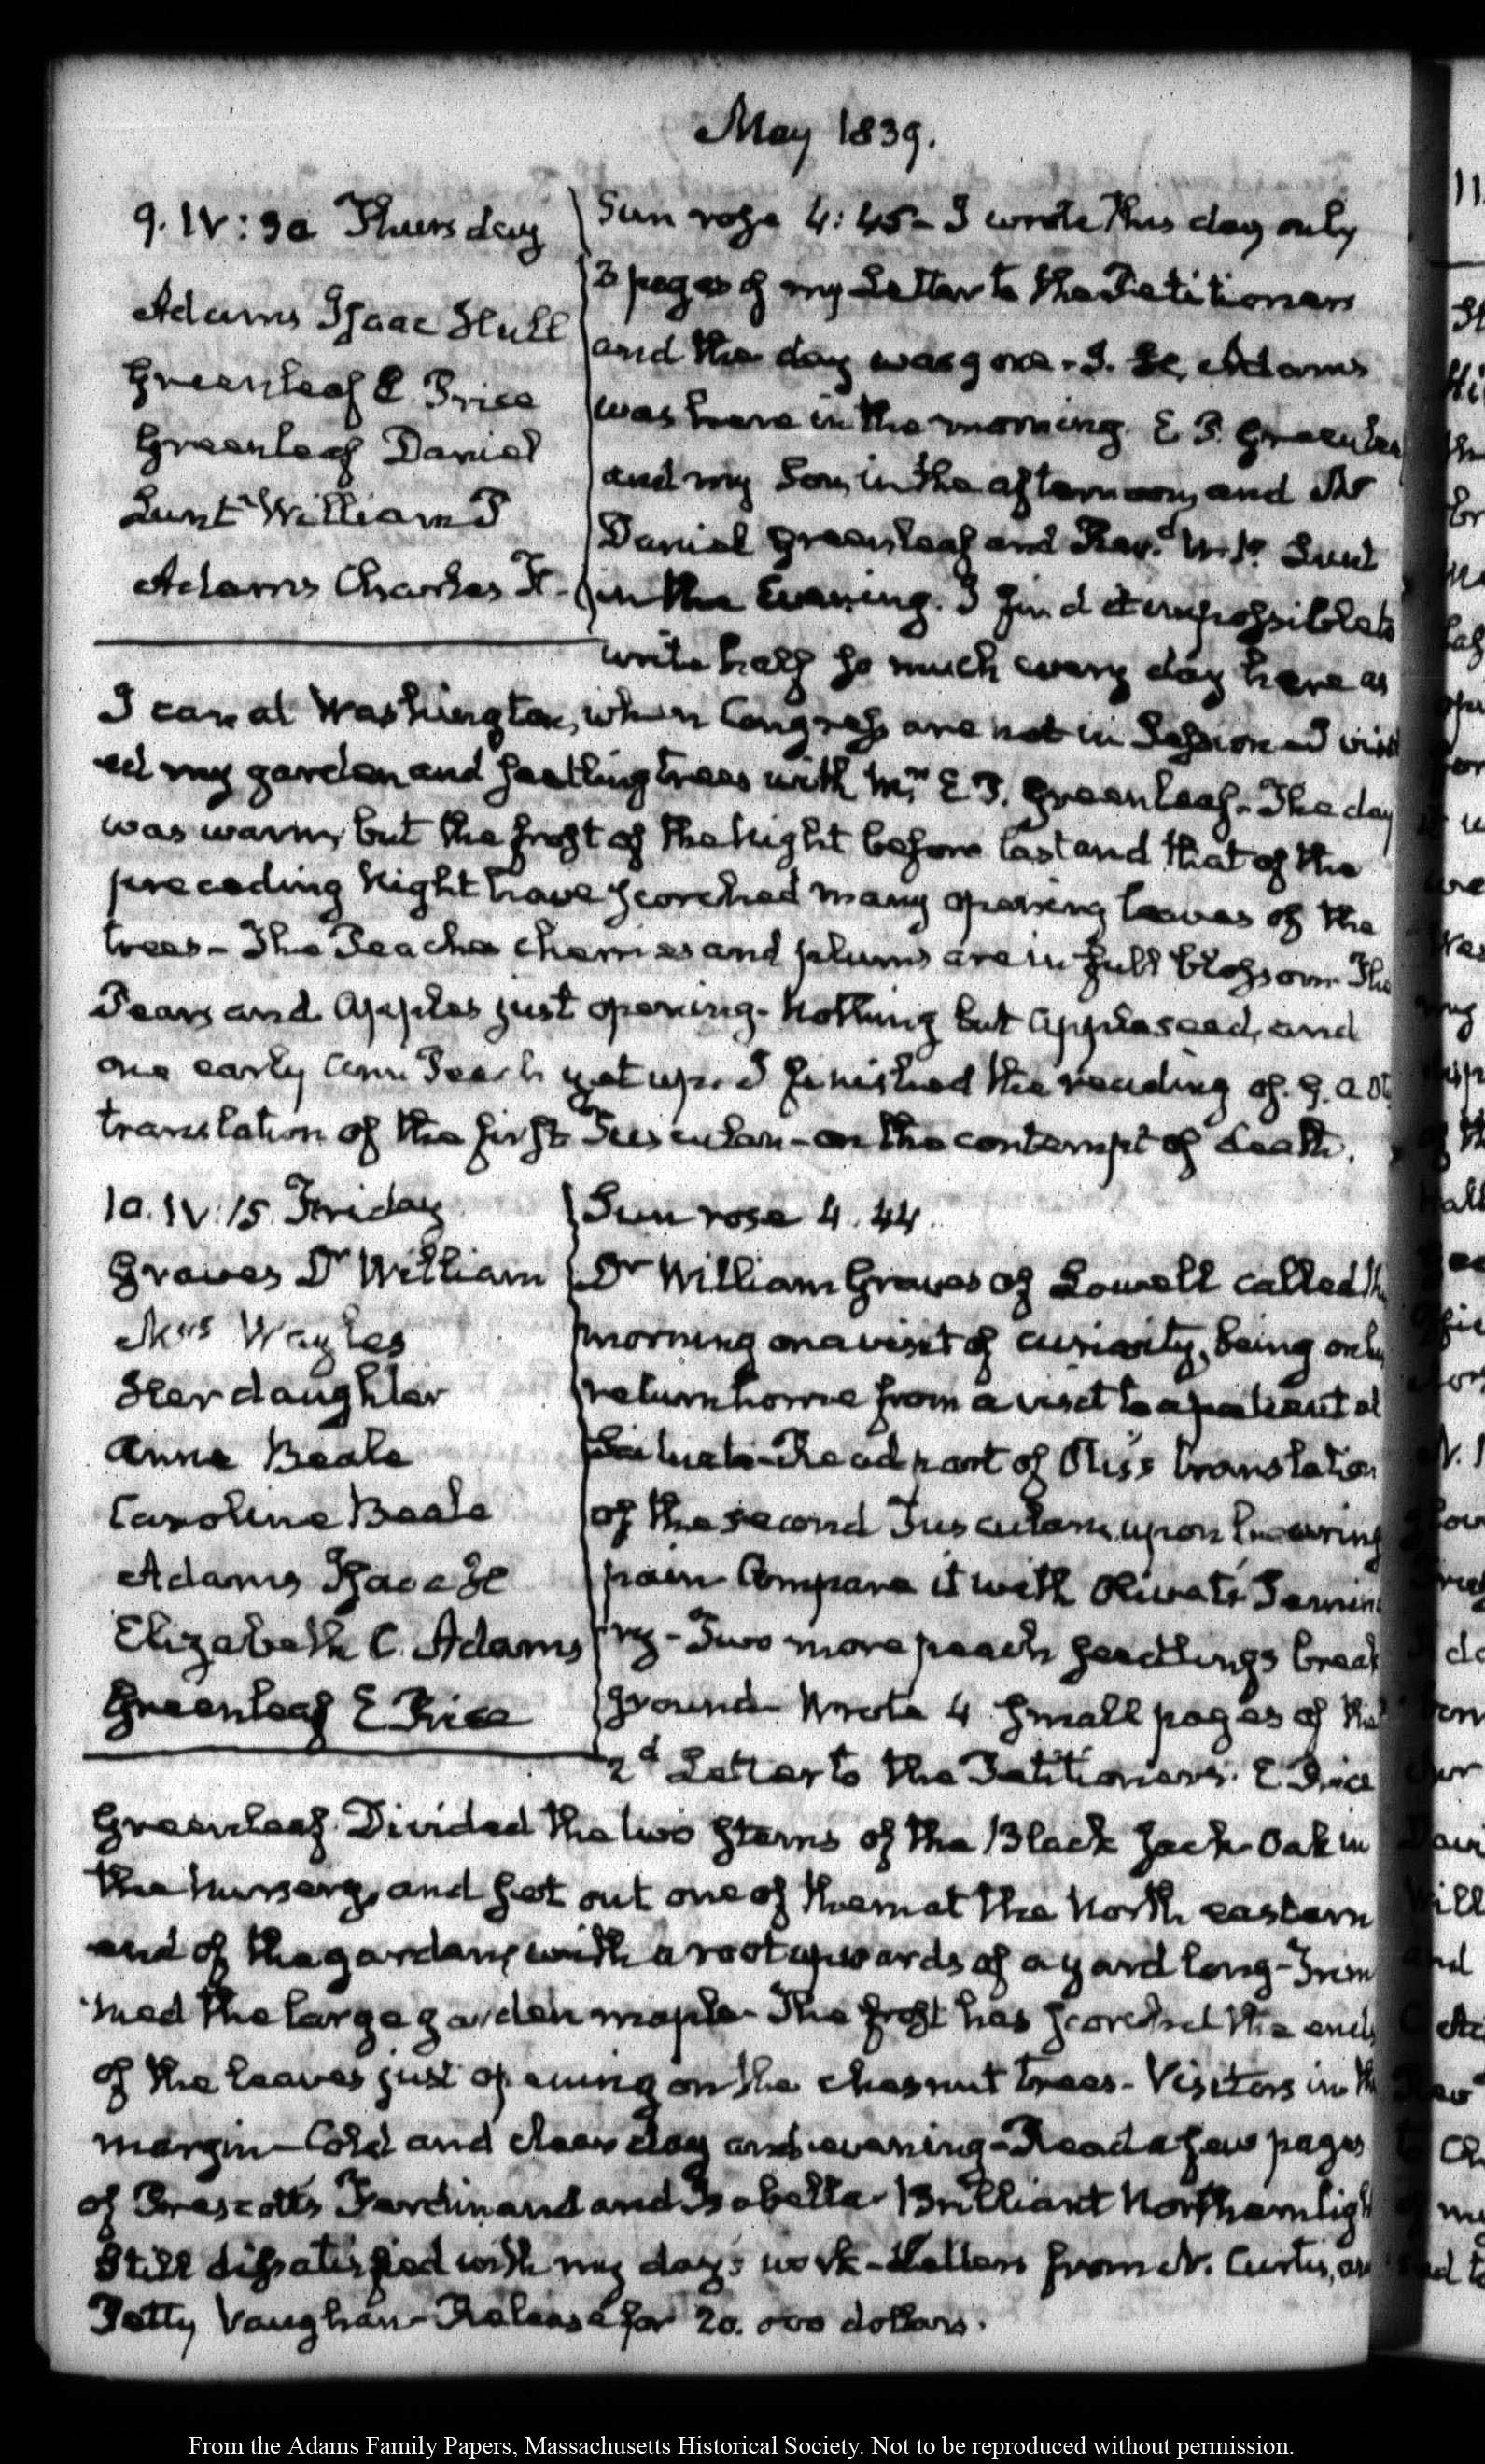 May 1839.
9. IV: 30 Thursday
Adams Isaac Hull
Greenleaf E. Price
Greenleaf Daniel
Lunt William P
Adams Charles F.
Sun rose 4:45 - I wrote this day only
3 pages of my Letter to the Petitioners
and the day was gone - I. H. Adams
was here in the morning. E P. Greenleaf
and my Son, in the afternoon, and Mr
Daniel Greenleaf and Revd. W. P. Lunt
in the Evening. I find it impossible to
write half so much every day here as
I can at Washington, when Congress are not in Session - I visit
ed my garden and seedling trees with Mr E. P. Greenleaf - The day
was warm, but the frost of the Night before last and that of the
preceding Night have scorched many opening leaves of the
trees - The Peaches cherries and plums are in full blossom. The
Pears and Apples just opening - Nothing but Appleseed, and
one early Peach yet up. I finished the reading of G. A. Otis
translation of the first Tusculan - on the contempt of death.
10. IV. 15. Friday
Graves Dr William
Mrs Wayles
Her daughter
Anne Beale
Caroline Beale
Adams Isaac H
Elizabeth C. Adams
Greenleaf E Price
Sun rose 4. 44.
Dr William Graves of Lowell called
morning on a visit of curiosity, being on
return home from a visit to a patient at
Scituate - Read part of Otis's translation
of the second Tusculan, upon
pain Compare it with Olivet's
Two more peach seedlings break
ground - Wrote 4 small pages of
2d Letter to the Petitioners. E Price
Greenleaf. Divided the two stems of the Black Jack Oak in
the Nursery, and set out one of them at the North eastern
end of the garden, with a root upwards of a yard long - Trim
med the large garden maple - The frost has scorched the ends
of the leaves just opening on the chesnut trees - Visitors in
margin - Cold and clear day and evening - Read a few pages
of Prescott's Ferdinand and Isabella - Brilliant Northern
Still dissatisfied with my day's work - Letters from N. Curtis, and
Petty Vaughan - Release for 20. 000 dollars.
From the Adams Family Papers, Massachusetts Historical Society. Not to be reproduced without permission.